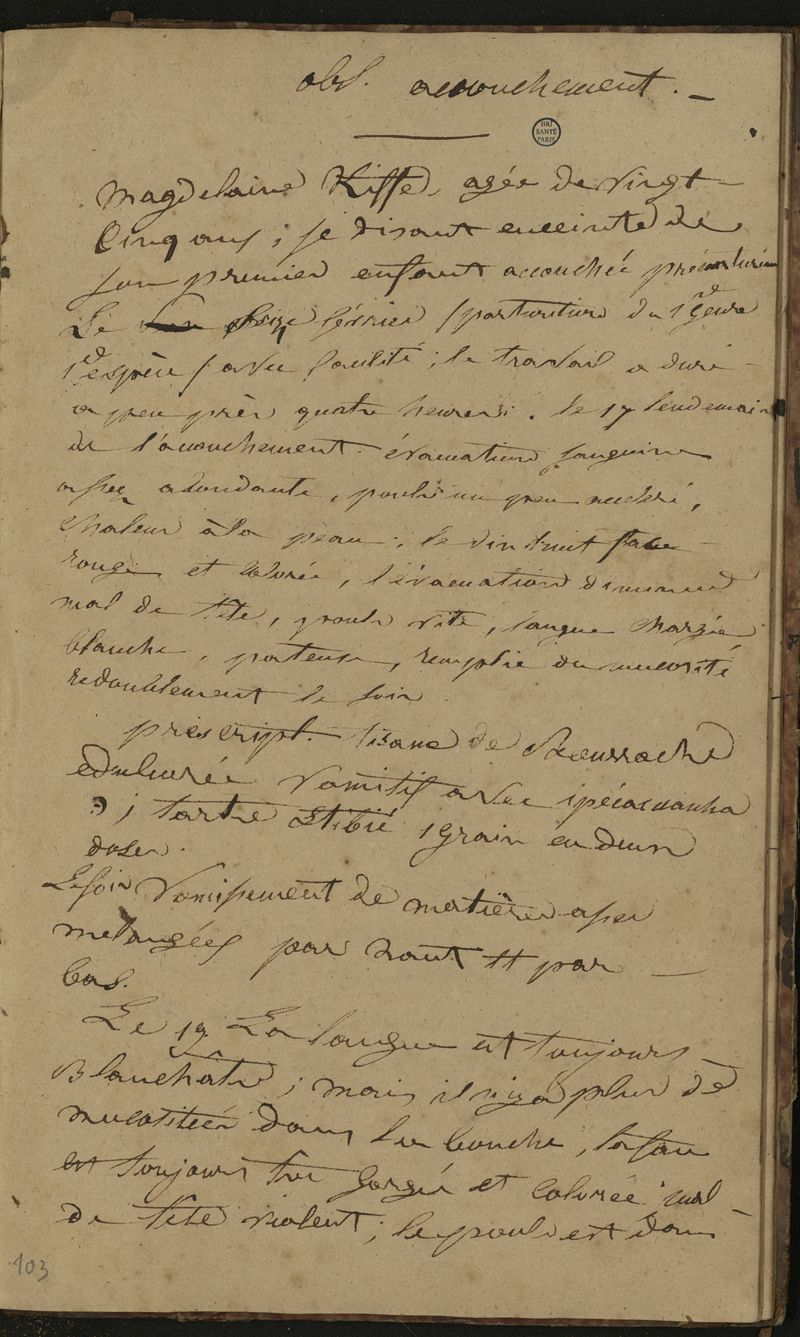 obs. accouchement. —
BIU
SANTÉ
PARIS
Magdelaine Kiffe, agée de vingt
cinq ans, se disant enceinte de
son premier enfant accouchée
Le seize février (parturition du 1er genre
1re espèce) avec facilité; le travail a duré
a peu près quatre heures. le 17 lendemain
de l'accouchement évacuation sanguine
assez abondante, pouls un peu accéléré,
chaleur à la peau; le dix huit face
rouge et colorée, l'évacuation diminue
mal de tête, pouls vite, langue chargée
blanche, pateuse, remplie de mucosité
redoublement le soir
prescript. tisane de Bourrache
edulcorée vomitif avec ipécacuanha
; tartre stibié 1 grain en deux
doses.
Le soir vomissement de matières assez
melangées par haut et par —
bas.
Le 19 La langue est toujours
Blanchâtre; mais il n'y a plus de
mucositées dans la bouche, la face
est toujours gorgée et colorée mal
de tête violent; le pouls est dans
103